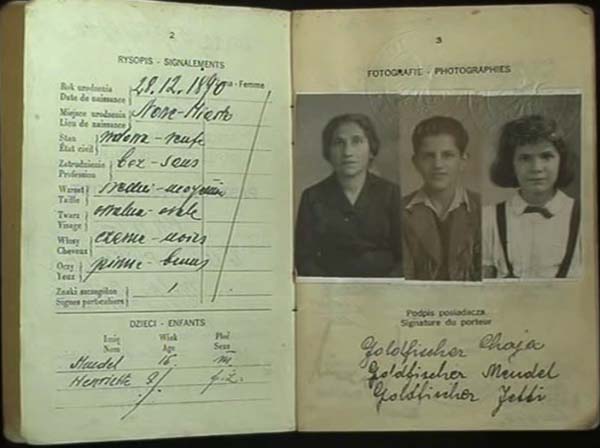 2
RYSOPIS - SIGNALEMENTS
Rok urodzenia
Date de naissance
28.12.1890
na-Femme
Miejsce urodzenia
Lieu de naissance
Nowe-Miasto
Stan
État civil
wdowa-veuve
Zatrudnienie
Profession
bez-sans
Wzrost
Taille
średni-moyenne
Twarz
Visage
owalna-ovale
Włosy
Cheveux
czarne-noirs
Oczy
Yeux
piwne-bruns
Znaki szczególne
Signes particuliers
/
DZIECI - ENFANTS
Imię Wiek Płeć
Nom Age Sexe
Mendel 16. m.
Henriette 8/
3
FOTOGRAFIE - PHOTOGRAPHIES
Podpis posiadacza
Signature du porteur
Goldfischer Chaja
Goldfischer Mendel
Goldfischer Jetti